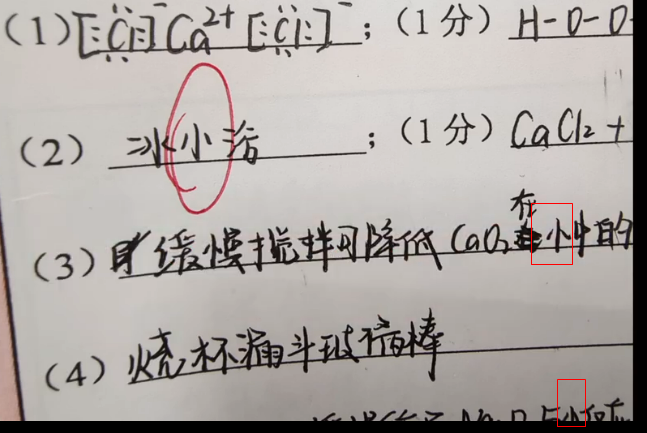 (1) [:Cl:]⁻Ca²⁺[:Cl:]⁻ ;(1分) H-O-O-
(2) 冰小浴 ;(1分) CaCl₂ +
(3) 缓慢搅拌可降低 CaO₂ 在小中的
(4) 烧杯漏斗玻璃棒